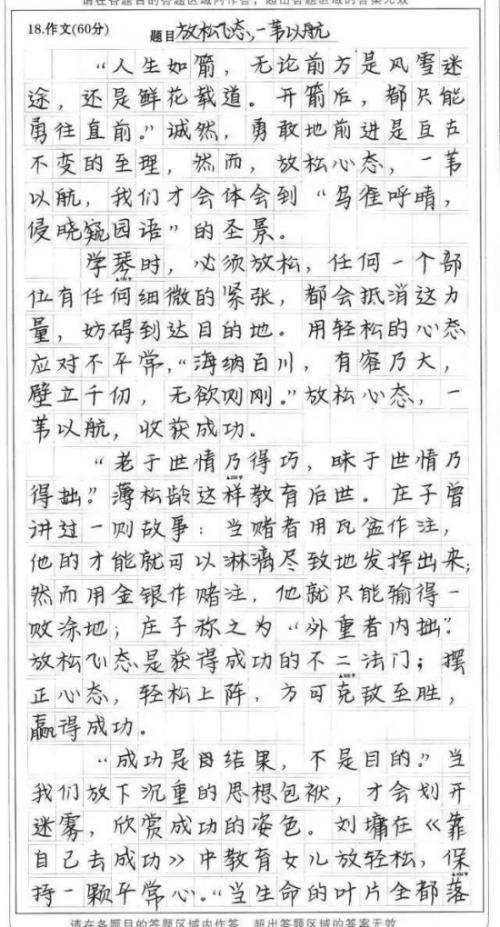 18.作文(60分) 题目 放松心态,一苇以航
“人生如箭，无论前方是风雪迷
途，还是鲜花载道。开箭后，都只能
勇往直前。”诚然，勇敢地前进是亘古
不变的至理，然而，放松心态，一苇
以航，我们才会体会到“乌雀呼晴，
侵晓窥园语”的圣景。
学琴时，必须放松，任何一个部
位有任何细微的紧张，都会抵消这力
量，妨碍到达目的地。用轻松的心态
应对不平常，“海纳百川，有容乃大，
壁立千仞，无欲则刚。”放松心态，一
苇以航，收获成功。
“老于世情乃得巧，昧于世情乃
得拙。”薄松龄这样教育后世。庄子曾
讲过一则故事：当赌者用瓦盆作注，
他的才能就可以淋漓尽致地发挥出来；
然而用金银作赌注，他就只能输得一
败涂地；庄子称之为“外重者内拙”。
放松心态是获得成功的不二法门；摆
正心态，轻松上阵，方可克敌至胜，
赢得成功。
“成功是结果，不是目的。”当
我们放下沉重的思想包袱，才会划开
迷雾，欣赏成功的姿色。刘墉在《靠
自己去成功》中教育女儿放轻松，保
持一颗平常心。“当生命的叶片全都落
请在各题目的答题区域内作答，超出答题区域的答案无效